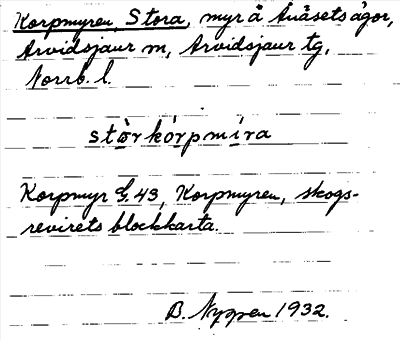 Korpmyren, Stora, myr å Auåsets ägor,
Arvidsjaur m, Arvidsjaur tg,
Norrb. l.
stòrkórpmíra
Korpmyr G. 43, Korpmyren, skogs-
revirets blockkarta.
B. Nygren 1932.